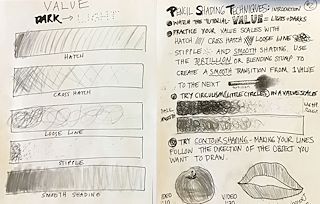 VALUE
DARK → LIGHT
HATCH
CROSS HATCH
LOOSE LINE
STIPPLE
SMOOTH SHADING
PENCIL SHADING TECHNIQUES: INTRODUCTION
WATCH THE TUTORIAL - VALUE = LIGHTS + DARKS
PRACTICE YOUR VALUE SCALES WITH
HATCH CROSS HATCH LOOSE LINE
STIPPLE AND SMOOTH SHADING. USE
THE TORTILLION OR BLENDING STUMP TO
CREATE A SMOOTH TRANSITION FROM 1 VALUE
TO THE NEXT
TRY CIRCULISM (LITTLE CIRCLES) IN A VALUE SCALE
TRY CONTOUR SHADING - MAKING YOUR LINES
FOLLOW THE DIRECTION OF THE OBJECT YOU
WANT TO DRAW.
VIDEO